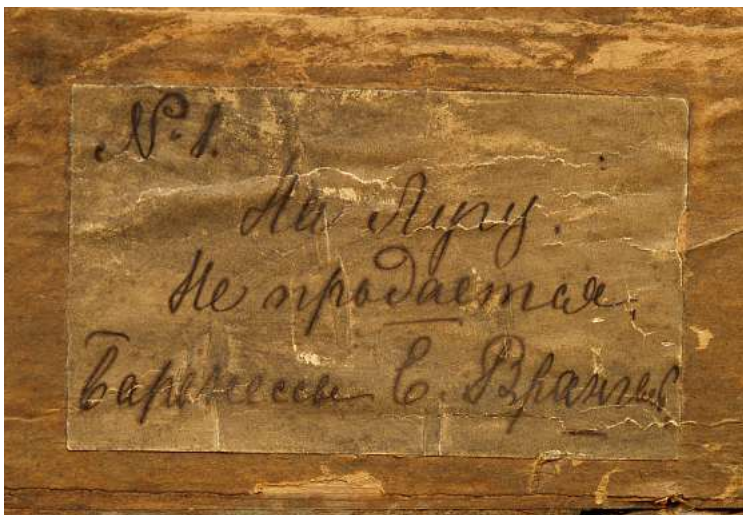 № 1.
На Лугу.
Не продается.
Баронессы Е. Врангель